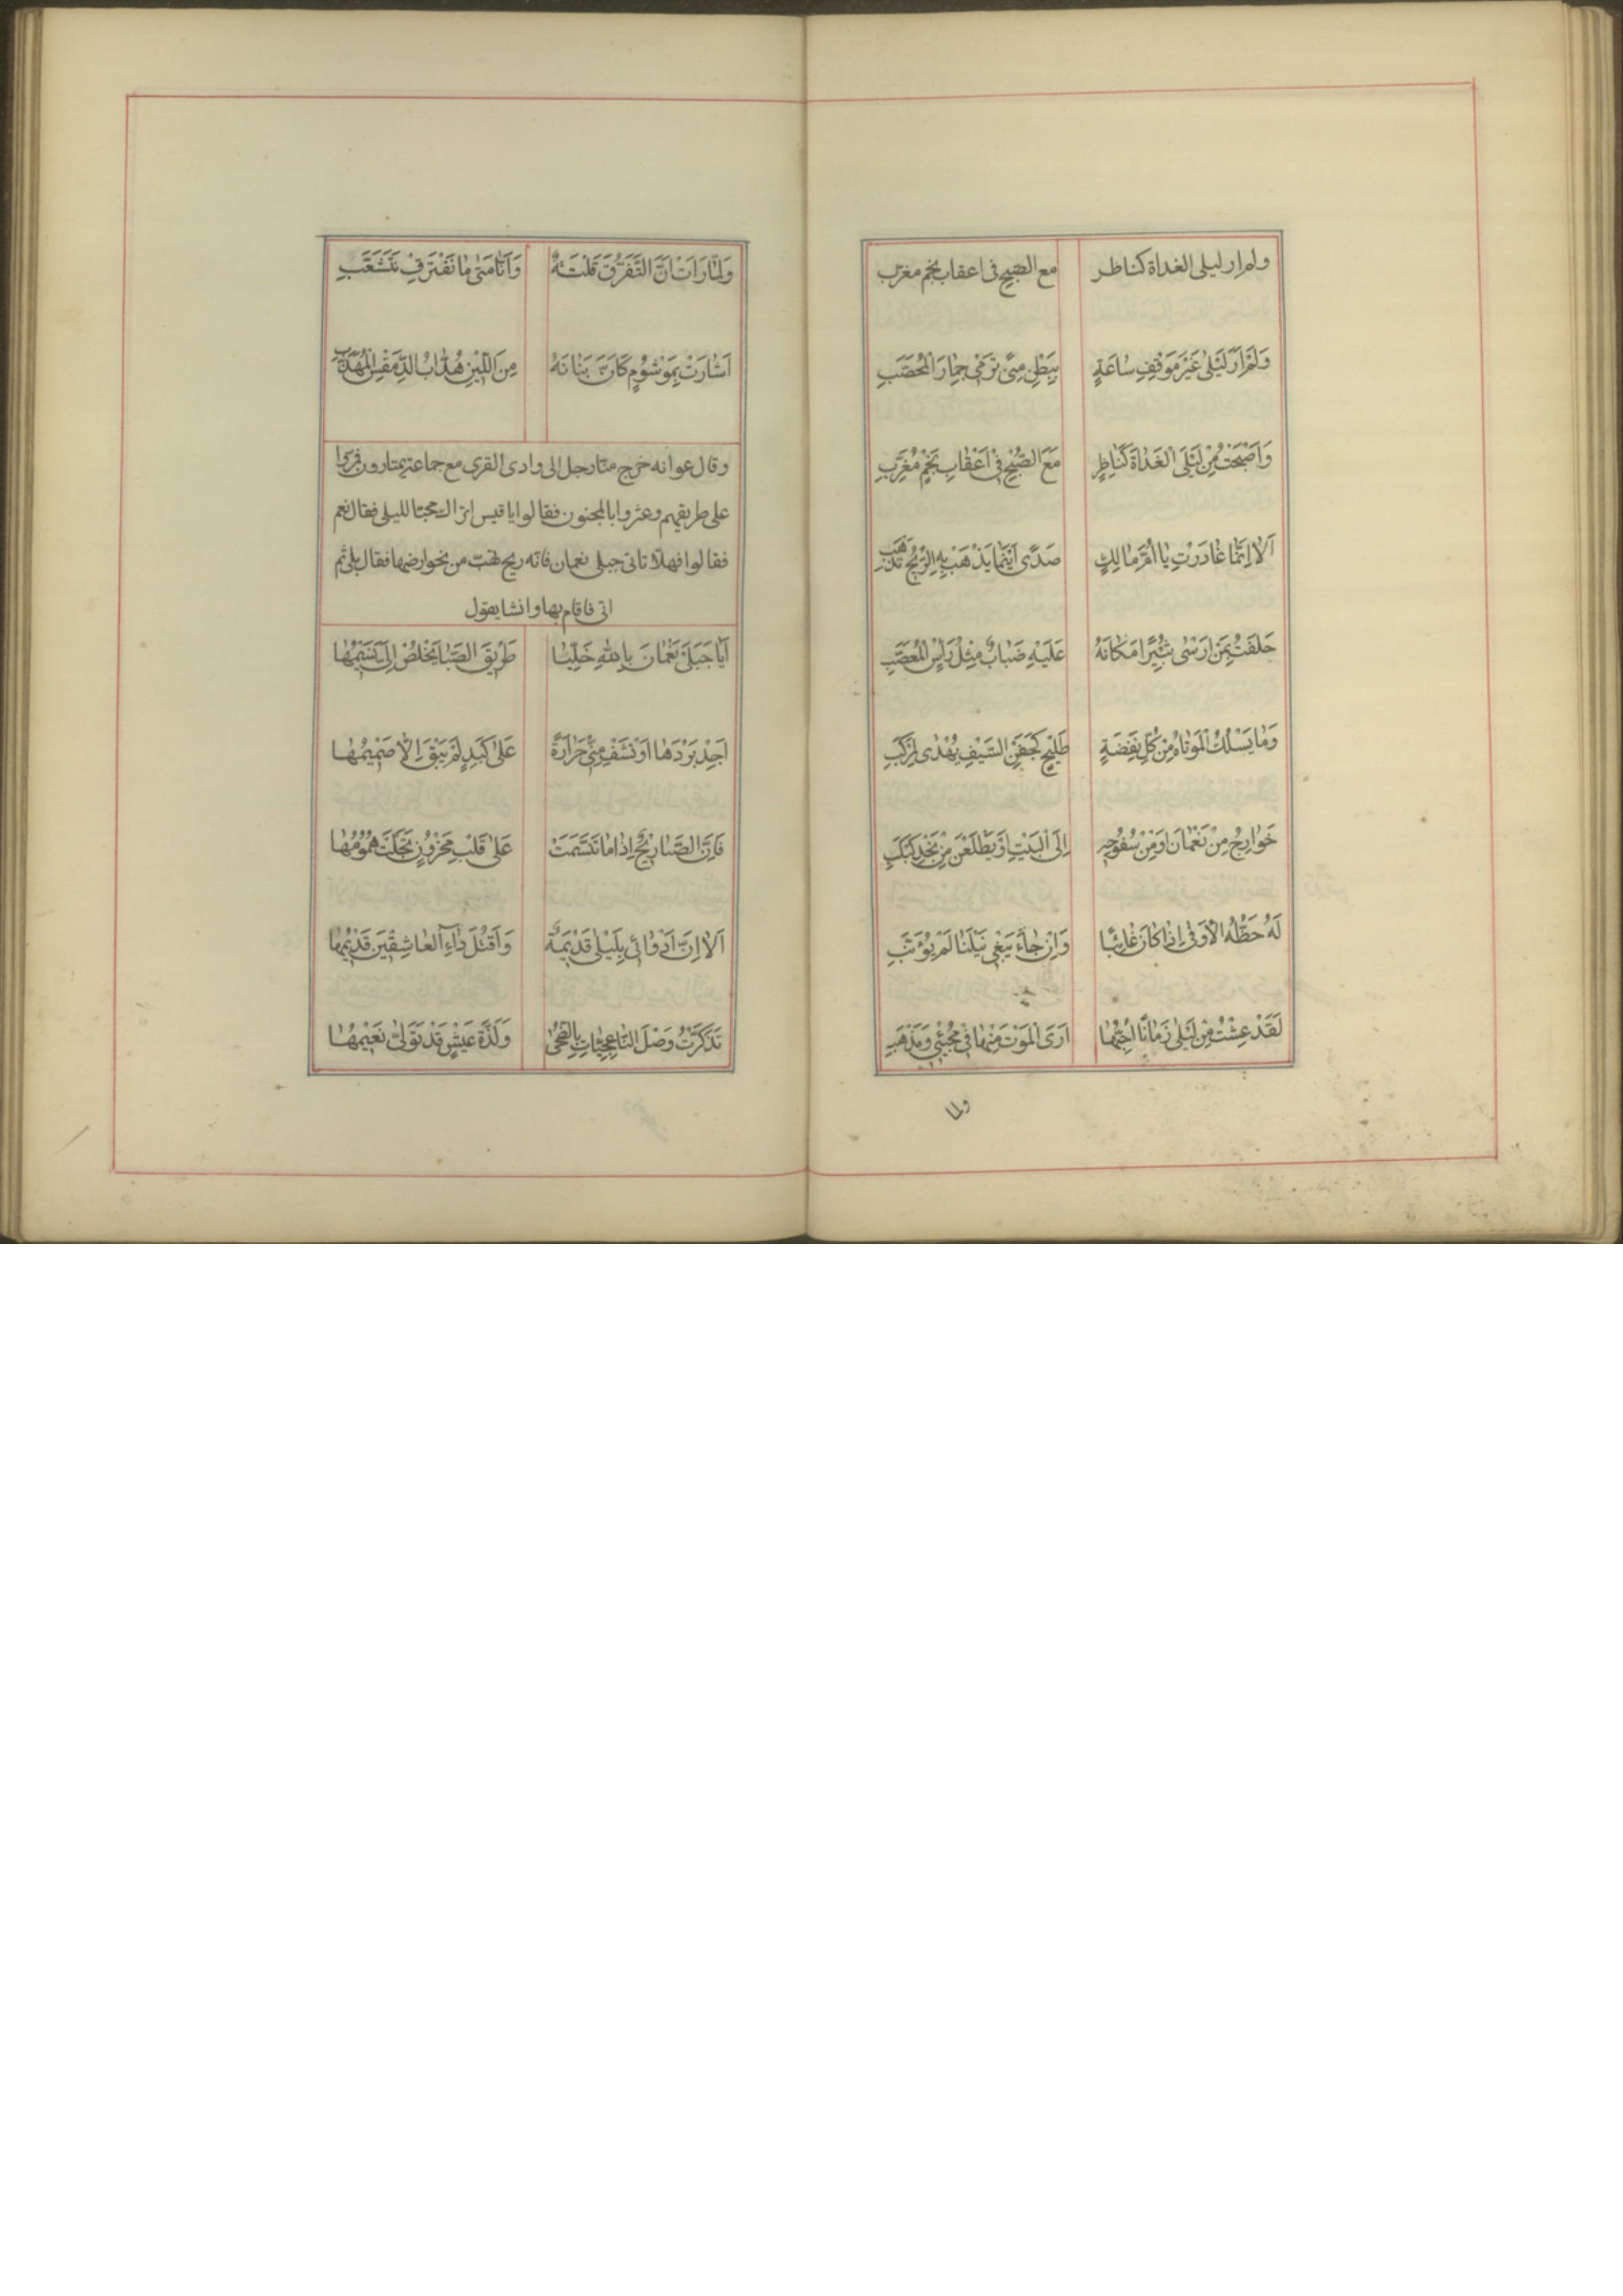 ولم ار ليلى الغداة كناظر مع الصبح فى اعقاب نجم مغرب
وَلَمْ اَرَ لَيْلىٰ غَيْرَ مَوْقِفِ سٰاعَةٍ بِبَطْنِ مِنىً تَرْمٖى جِمٰارَ الْمُحَصَّبِ
وَاَصْبَحْتُ مِنْ لَيْلَى الْغَدٰاةَ كَنٰاظِرٍ مَعَ الصُّبْحِ فٖى اَعْقٰابِ نَجْمٍ مُغَرِّبِ
اَلٰا اِنَّمٰا غٰادَرْتِ يٰا اُمَّ مٰالِكٍ صَدًى اَيْنَمٰا يَذْهَبْ بِهِ الرّٖيحُ تَذْهَبِ
حَلَفْتُ بِمَنْ اَرْسٰى ثَبٖيرًا مَكٰانَهُ عَلَيْهِ ضَبٰابٌ مِثْلُ رَأْسِ الْمُعَصَّبِ
وَمٰا يَسْلُكُ الْمَوْمٰاةَ مِنْ كُلِّ نَفْضَةٍ طَلٖيحٍ كَجَفْنِ السَّيْفِ يُهْدٰى لِمَرْكَبِ
خَوٰارِجُ مِنْ نَعْمٰانَ اَوْ مِنْ سُفُوحِهِ اِلَى الْبَيْتِ اَوْ يَطْلَعْنَ مِنْ نَجْدِ كَبْكَبِ
لَهُ حَظُّهُ الْاَوْفٰى اِذٰا كٰانَ غٰائِبًا وَاِنْ جٰاءَ يَبْغٖى نَيْلَنٰا لَمْ يُؤَنَّبِ
لَقَدْ عِشْتُ مِنْ لَيْلىٰ زَمٰانًا اُحِبُّهٰا اَرَى الْمَوْتَ مِنْهٰا فٖى مَجٖيئٖى وَمَذْهَبٖى
ولما
وَلَمّٰا رَاَتْ اَنَّ التَّفَرُّقَ فَلْتَةٌ وَاَنّٰا مَتٰى مٰا نَفْتَرِقْ نَتَشَعَّبِ
اَشٰارَتْ بِمَوْشُومٍ كَاَنَّ بَنٰانَهُ مِنَ اللّٖينِ هُدّٰابُ الدِّمَقْسِ الْمُهَدَّبِ
وقال عوانه خرج منا رجل الى وادى القرى مع جماعة يمتارون فمروا
على طريقهم وعثروا بالمجنون فقالوا يا قيس اتراك محبا لليلى فقال نعم
فقالوا فهلا تاتى جبلى نعمان فانه ريح تهب من نحو ارضها فقال بلى ثم
اتى فاقام بها وانشا يقول
اَيٰا جَبَلَىْ نَعْمٰانَ بِاللّٰهِ خَلِّيٰا طَرٖيقَ الصَّبٰا يَخْلُصْ اِلَىَّ نَسٖيمُهٰا
اَجِدْ بَرْدَهٰا اَوْ تَشْفِ مِنّٖى حَرٰارَةً عَلىٰ كَبِدٍ لَمْ يَبْقَ اِلّٰا صَمٖيمُهٰا
فَاِنَّ الصَّبٰا رٖيحٌ اِذٰا مٰا تَنَسَّمَتْ عَلىٰ قَلْبِ مَحْزُونٍ تَجَلَّتْ هُمُومُهٰا
اَلٰا اِنَّ اَدْوٰائٖى بِلَيْلىٰ قَدٖيمَةٌ وَاَقْتَلُ دٰاءِ الْعٰاشِقٖينَ قَدٖيمُهٰا
تَذَكَّرْتُ وَصْلَ النّٰاعِجِيّٰاتِ بِالضُّحٰى وَلَذَّةَ عَيْشٍ قَدْ تَوَلّٰى نَعٖيمُهٰا